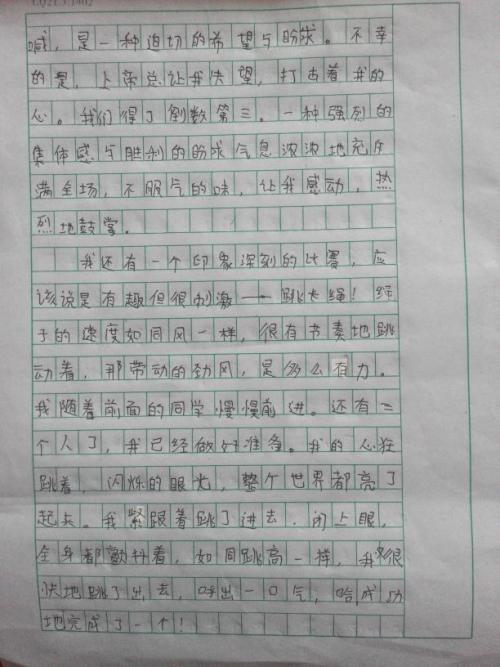 喊，是一种迫切的希望与盼求。不幸
的是，上帝总让我失望，打击着我的
心。我们得了倒数第三。一种强烈的
集体感与胜利的盼求气息浓浓地充斥
满全场，不服气的味，让我感动，热
烈地鼓掌。
我还有一个印象深刻的比赛，应
该说是有趣但很刺激——跳长绳！绳
子的速度如同风一样，很有节奏地跳
动着，那带动的劲风，是多么有力。
我随着前面的同学慢慢前进。还有二
个人了，我已经做好准备。我的心狂
跳着，闪烁的眼光，整个世界都亮了
起来。我紧跟着跳了进去，闭上眼，
全身都颤抖着，如同跳高一样，我很
快地跳了出去，呼出一口气，哈成功
地完成了一个！